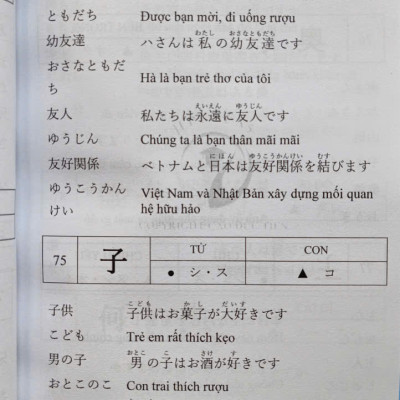 ともだち Được bạn mời, đi uống rượu
わたし おさなともだち
幼友達 ハさんは私の幼友達です
おさなともだ
ち Hà là bạn trẻ thơ của tôi
えいえん ゆうじん
友人 私たちは永遠に友人です
ゆうじん Chúng ta là bạn thân mãi mãi
にほん ゆうこうかんけい むす
友好関係 ベトナムと日本は友好関係を結びます
ゆうこうかん
けい Việt Nam và Nhật Bản xây dựng mối quan
hệ hữu hảo
75 子 TỬ CON
● シ・ス ▲ コ
こども かし だいす
子供 子供はお菓子が大好きです
こども Trẻ em rất thích kẹo
おとこ こ さけ す
男の子 男の子はお酒が好きです
おとこのこ Con trai thích rượu